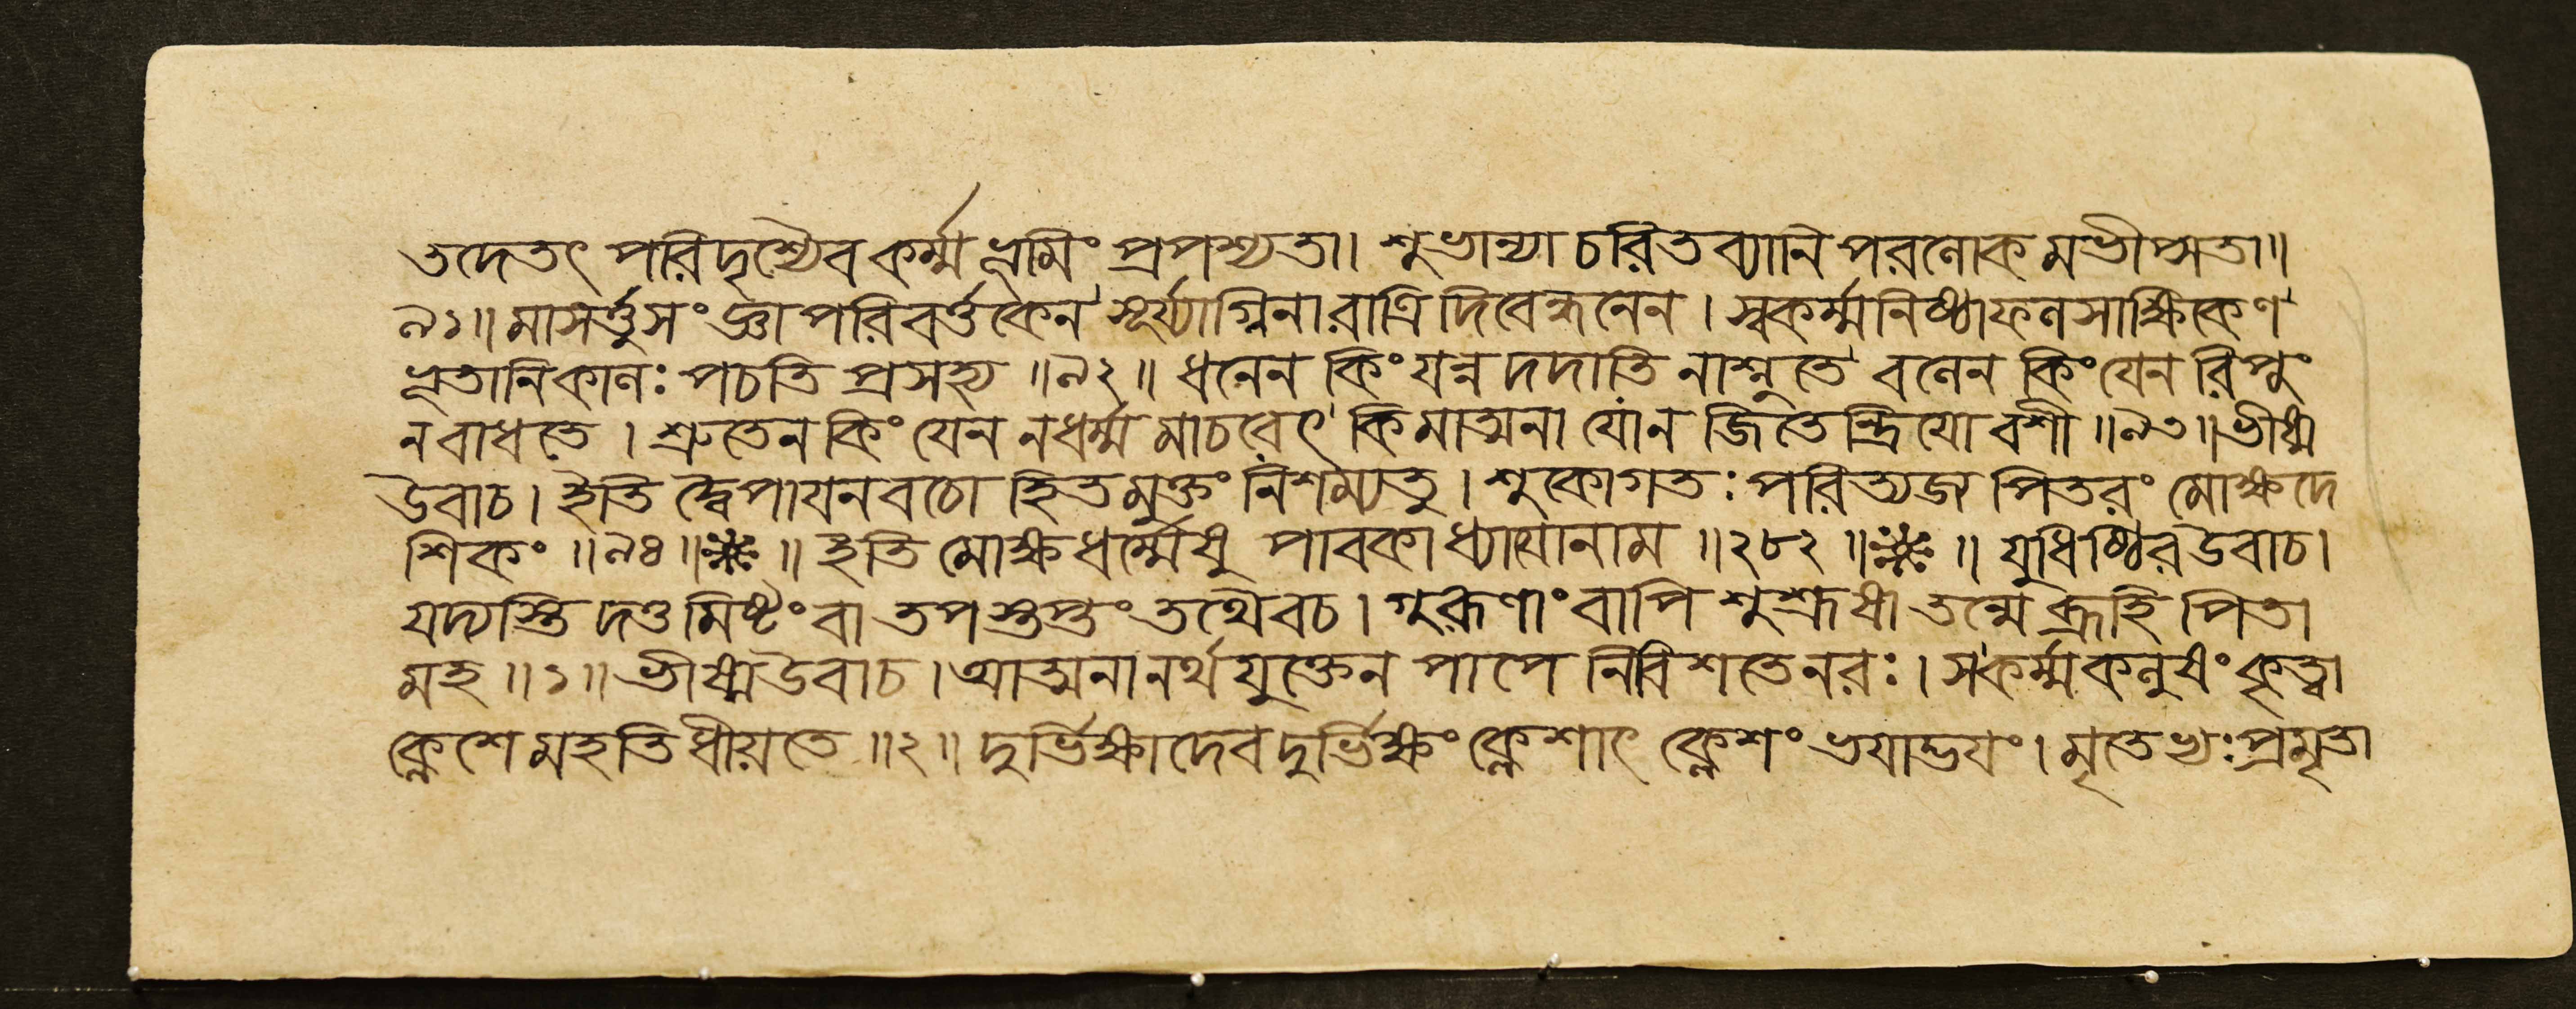 তদেতৎ পরিদৃশ্যৈব কর্ম্মভূমিং প্রপশ্যতা। শুভান্যাচরিতব্যানি পরলোকমভীপ্সতা॥
৯১॥ মাসর্ত্তুসংজ্ঞাপরিবর্ত্তকেন সূর্য্যাগ্নিনা রাত্রিদিবেন্ধনেন। স্বকর্ম্মনিষ্ঠাফলসাক্ষিকেণ
ভূতানি কালঃ পচতি প্রসহ্য ॥৯২॥ ধনেন কিং যন্ন দদাতি নাশ্নুতে বলেন কিং যেন রিপুং
ন বাধতে। শ্রুতেন কিং যেন ন ধর্ম্মমাচরেৎ কিমাত্মনা যো ন জিতেন্দ্রিয়ো বশী ॥৯৩॥ ভীষ্ম
উবাচ। ইতি দ্বৈপায়নবচো হিতমুক্তং নিশম্য তু। শুকো গতঃ পরিত্যজ্য পিতরং মোক্ষদে
শিকং ॥৯৪॥ ॥ ইতি মোক্ষধর্ম্মেষু পাবকাধ্যায়ো নাম ॥২৮২॥ ॥ যুধিষ্ঠির উবাচ।
যদ্যস্তি দত্তমিষ্টং বা তপস্তপ্তং তথৈব চ। গুরূণাং বাপি শুশ্রূষা তন্মে ব্রূহি পিতা
মহ ॥১॥ ভীষ্ম উবাচ। আত্মনানর্থযুক্তেন পাপে নিবিশতে নরঃ। স কর্ম্ম কলুষং কৃত্বা
ক্লেশে মহতি ধীয়তে ॥২॥ দুর্ভিক্ষাদেব দুর্ভিক্ষং ক্লেশাৎ ক্লেশং ভয়াদ্ভয়ং। মৃতেভ্যঃ প্রমৃতা